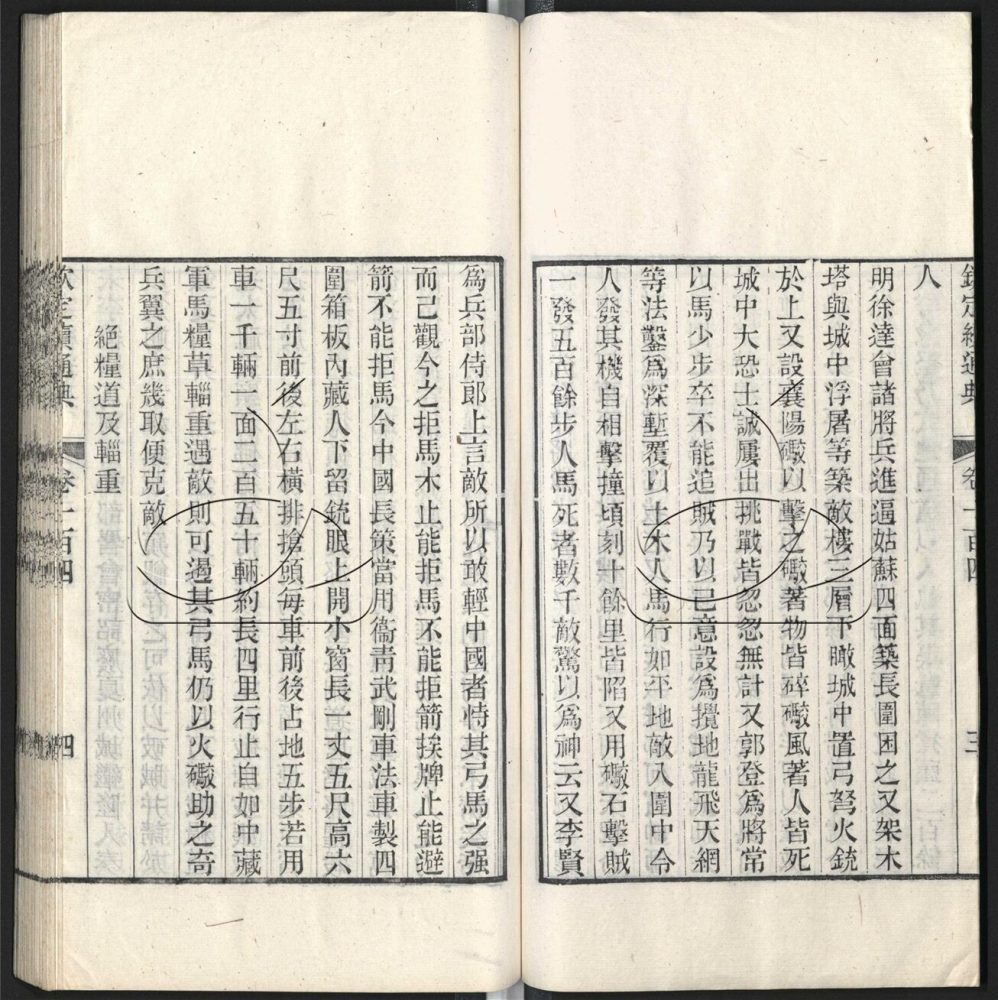 欽定續通典 卷一百四 三
人
明徐達會諸將兵進逼姑蘇四面築長圍困之又架木
塔與城中浮屠等築敵樓三層下瞰城中置弓弩火銃
於上又設襄陽礮以擊之礮著物皆碎礮風著人皆死
城中大恐士誠屢出挑戰皆忽忽無計又郭登爲將常
以馬少步卒不能追賊乃以已意設爲攪地龍飛天網
等法鑿爲深塹覆以土木人馬行如平地敵入圍中令
人發其機自相擊撞頃刻十餘里皆陷又用礮石擊賊
一發五百餘步人馬死者數千敵驚以爲神云又李賢
爲兵部侍郎上言敵所以敢輕中國者恃其弓馬之强
而已觀今之拒馬木止能拒馬不能拒箭挨牌止能避
箭不能拒馬今中國長策當用衞青武剛車法車製四
圍箱板內藏人下留銃眼上開小窗長一丈五尺高六
尺五寸前後左右橫排搶頭每車前後占地五步若用
車一千輛一面二百五十輛約長四里行止自如中藏
軍馬糧草輜重遇敵則可遏其弓馬仍以火礮助之奇
兵翼之庶幾取便克敵
絕糧道及輜重
欽定續通典 卷一百四 四